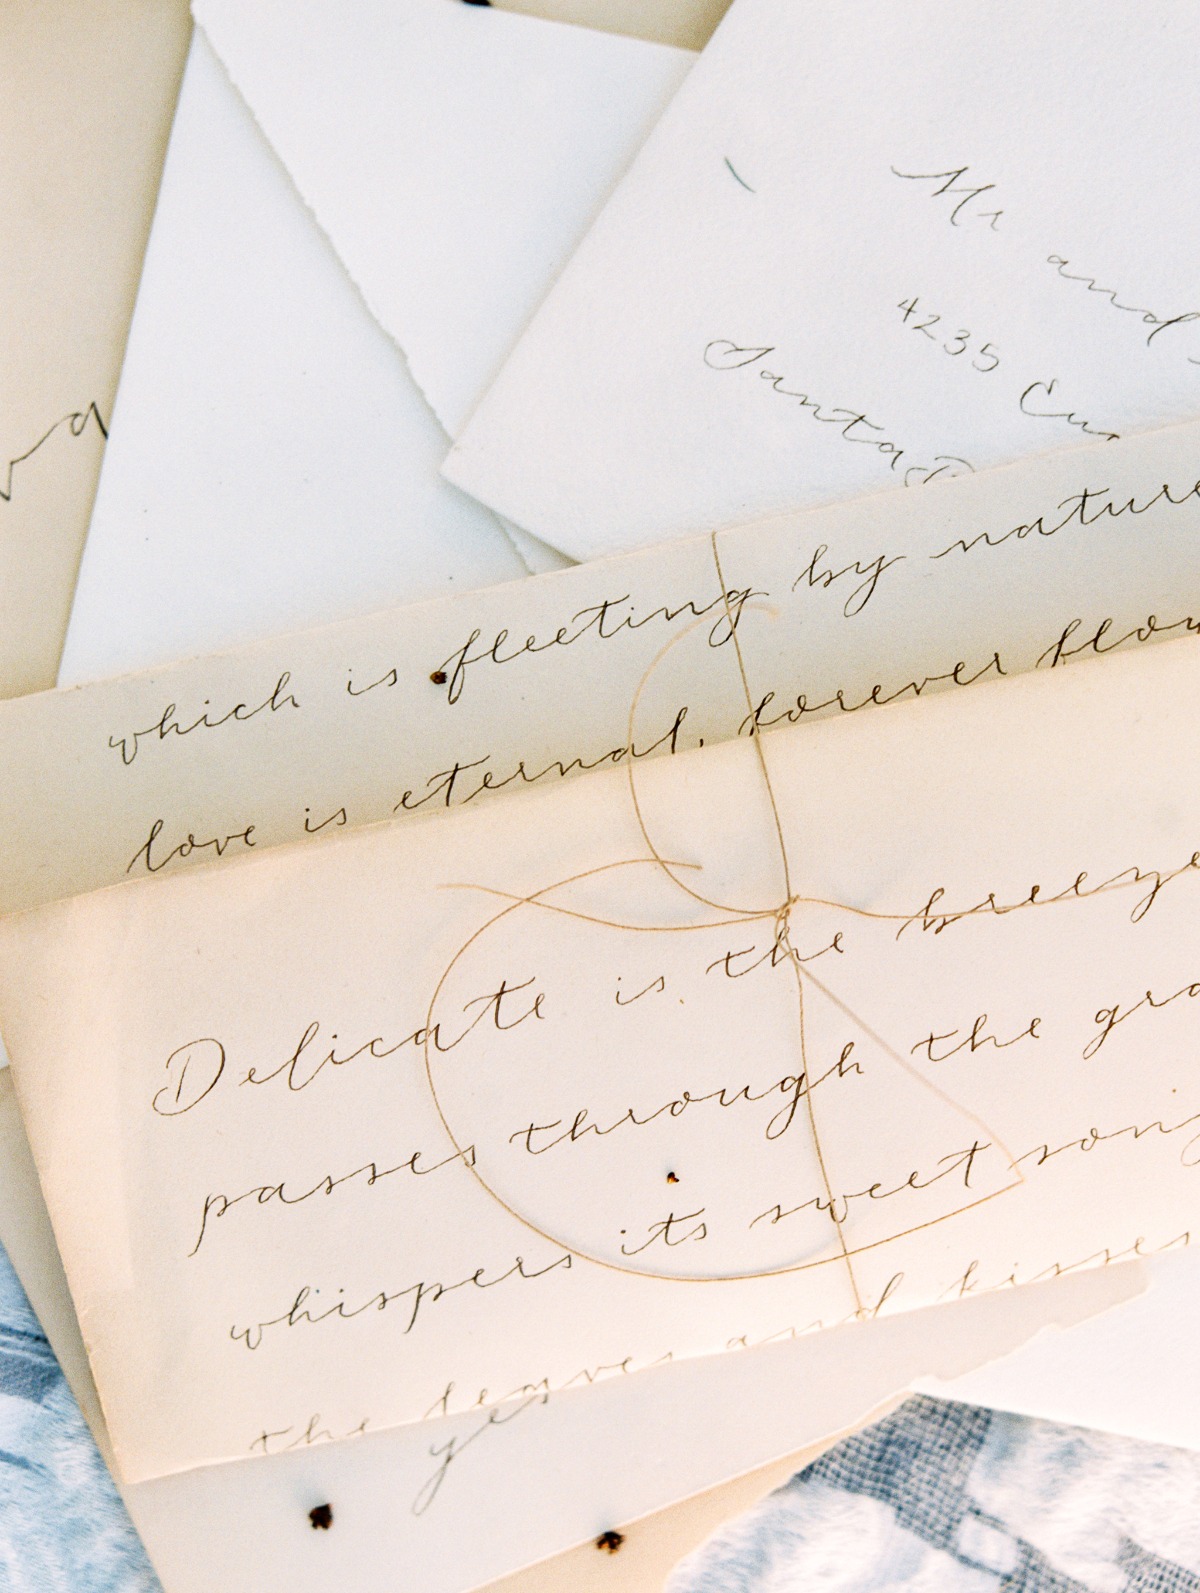 Mr and
4235
Santa
which is fleeting by nature
love is eternal. forever
Delicate is the breeze
passes through the
whispers its sweet song
the leaves and kisses
yes